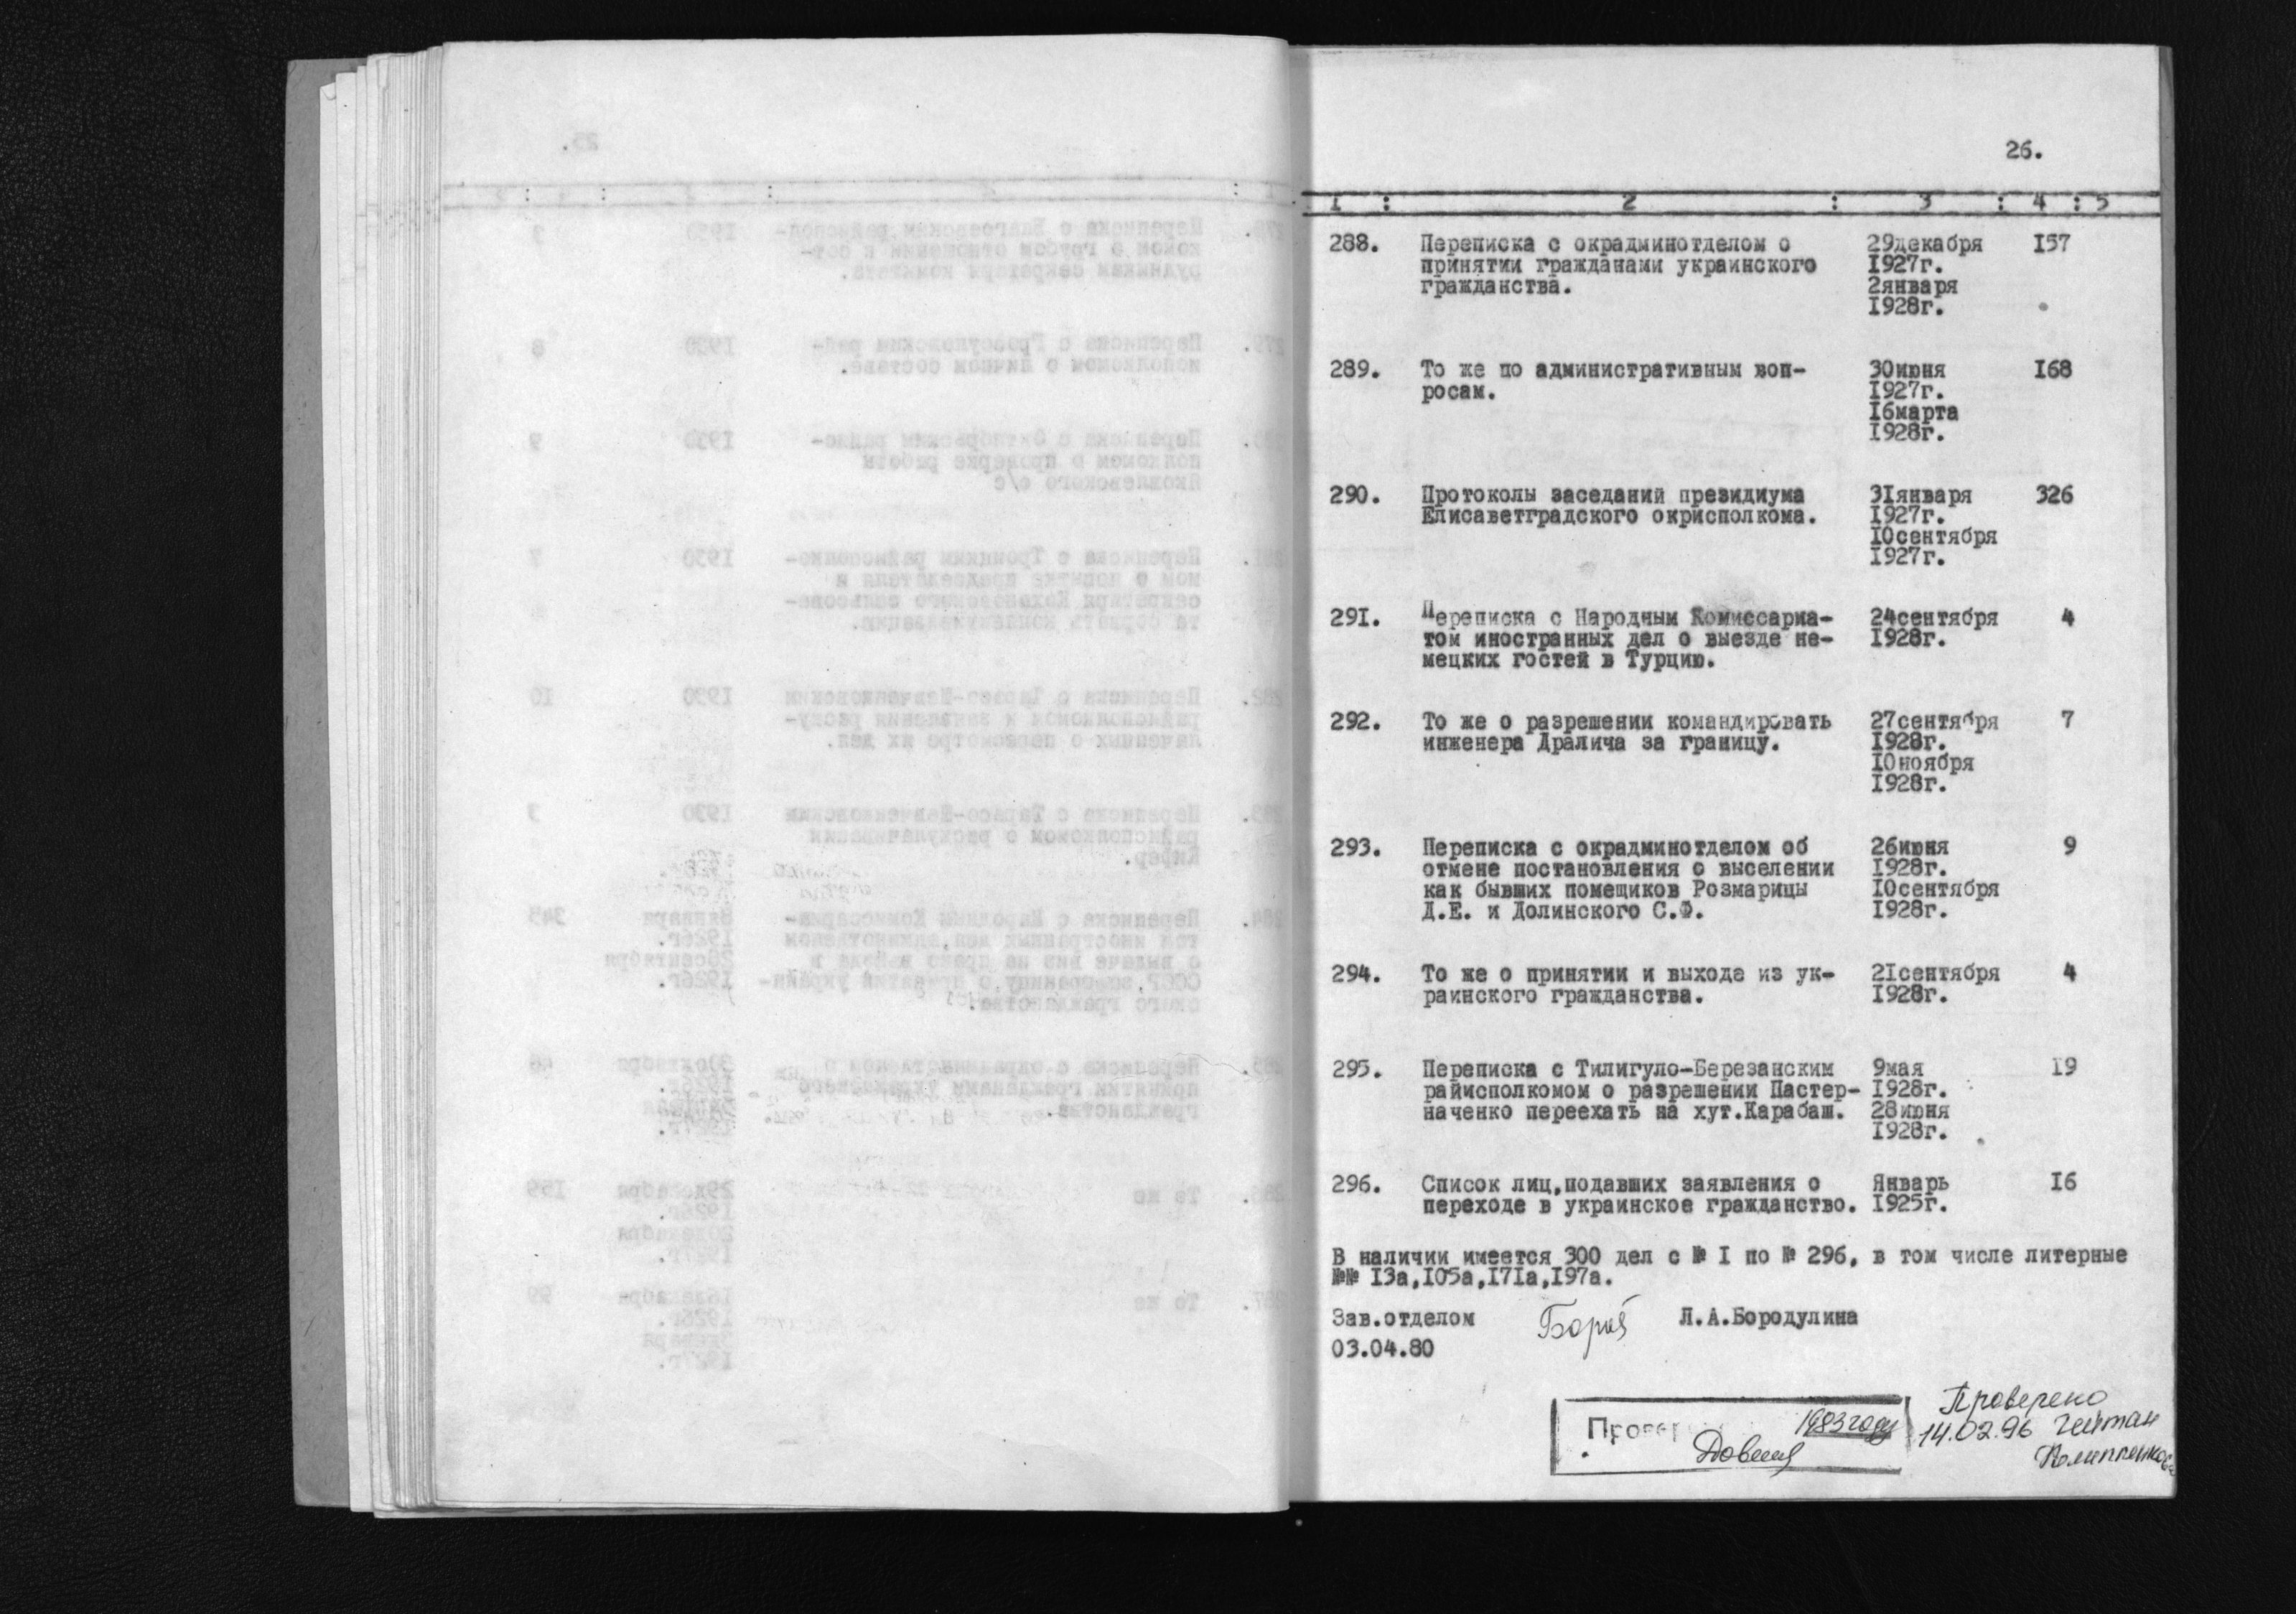 26.
1 : 2 : 3 : 4 : 5
288. Переписка с окрадминотделом о 29декабря 157
принятии гражданами украинского 1927г.
гражданства. 2января
1928г.
289. То же по административным воп- 30июня 168
росам. 1927г.
16марта
1928г.
290. Протоколы заседаний президиума 31января 326
Елисаветградского окрисполкома. 1927г.
10сентября
1927г.
291. Переписка с Народным Комиссариа- 24сентября 4
том иностранных дел о выезде не- 1928г.
мецких гостей в Турцию.
292. То же о разрешении командировать 27сентября 7
инженера Дралича за границу. 1928г.
10ноября
1928г.
293. Переписка с окрадминотделом об 26июня 9
отмене постановления о выселении 1928г.
как бывших помещиков Розмарицы 10сентября
Д.Е. и Долинского С.Ф. 1928г.
294. То же о принятии и выходе из ук- 21сентября 4
раинского гражданства. 1928г.
295. Переписка с Тилигуло-Березанским 9мая 19
райисполкомом о разрешении Пастер- 1928г.
наченко переехать на хут.Карабаш. 28июня
1928г.
296. Список лиц,подавших заявления о Январь 16
переходе в украинское гражданство. 1925г.
В наличии имеется 300 дел с № I по № 296, в том числе литерные
№№ 13а,105а,171а,197а.
Зав.отделом Л.А.Бородулина
03.04.80
Проверено
1983 году
14.02.96